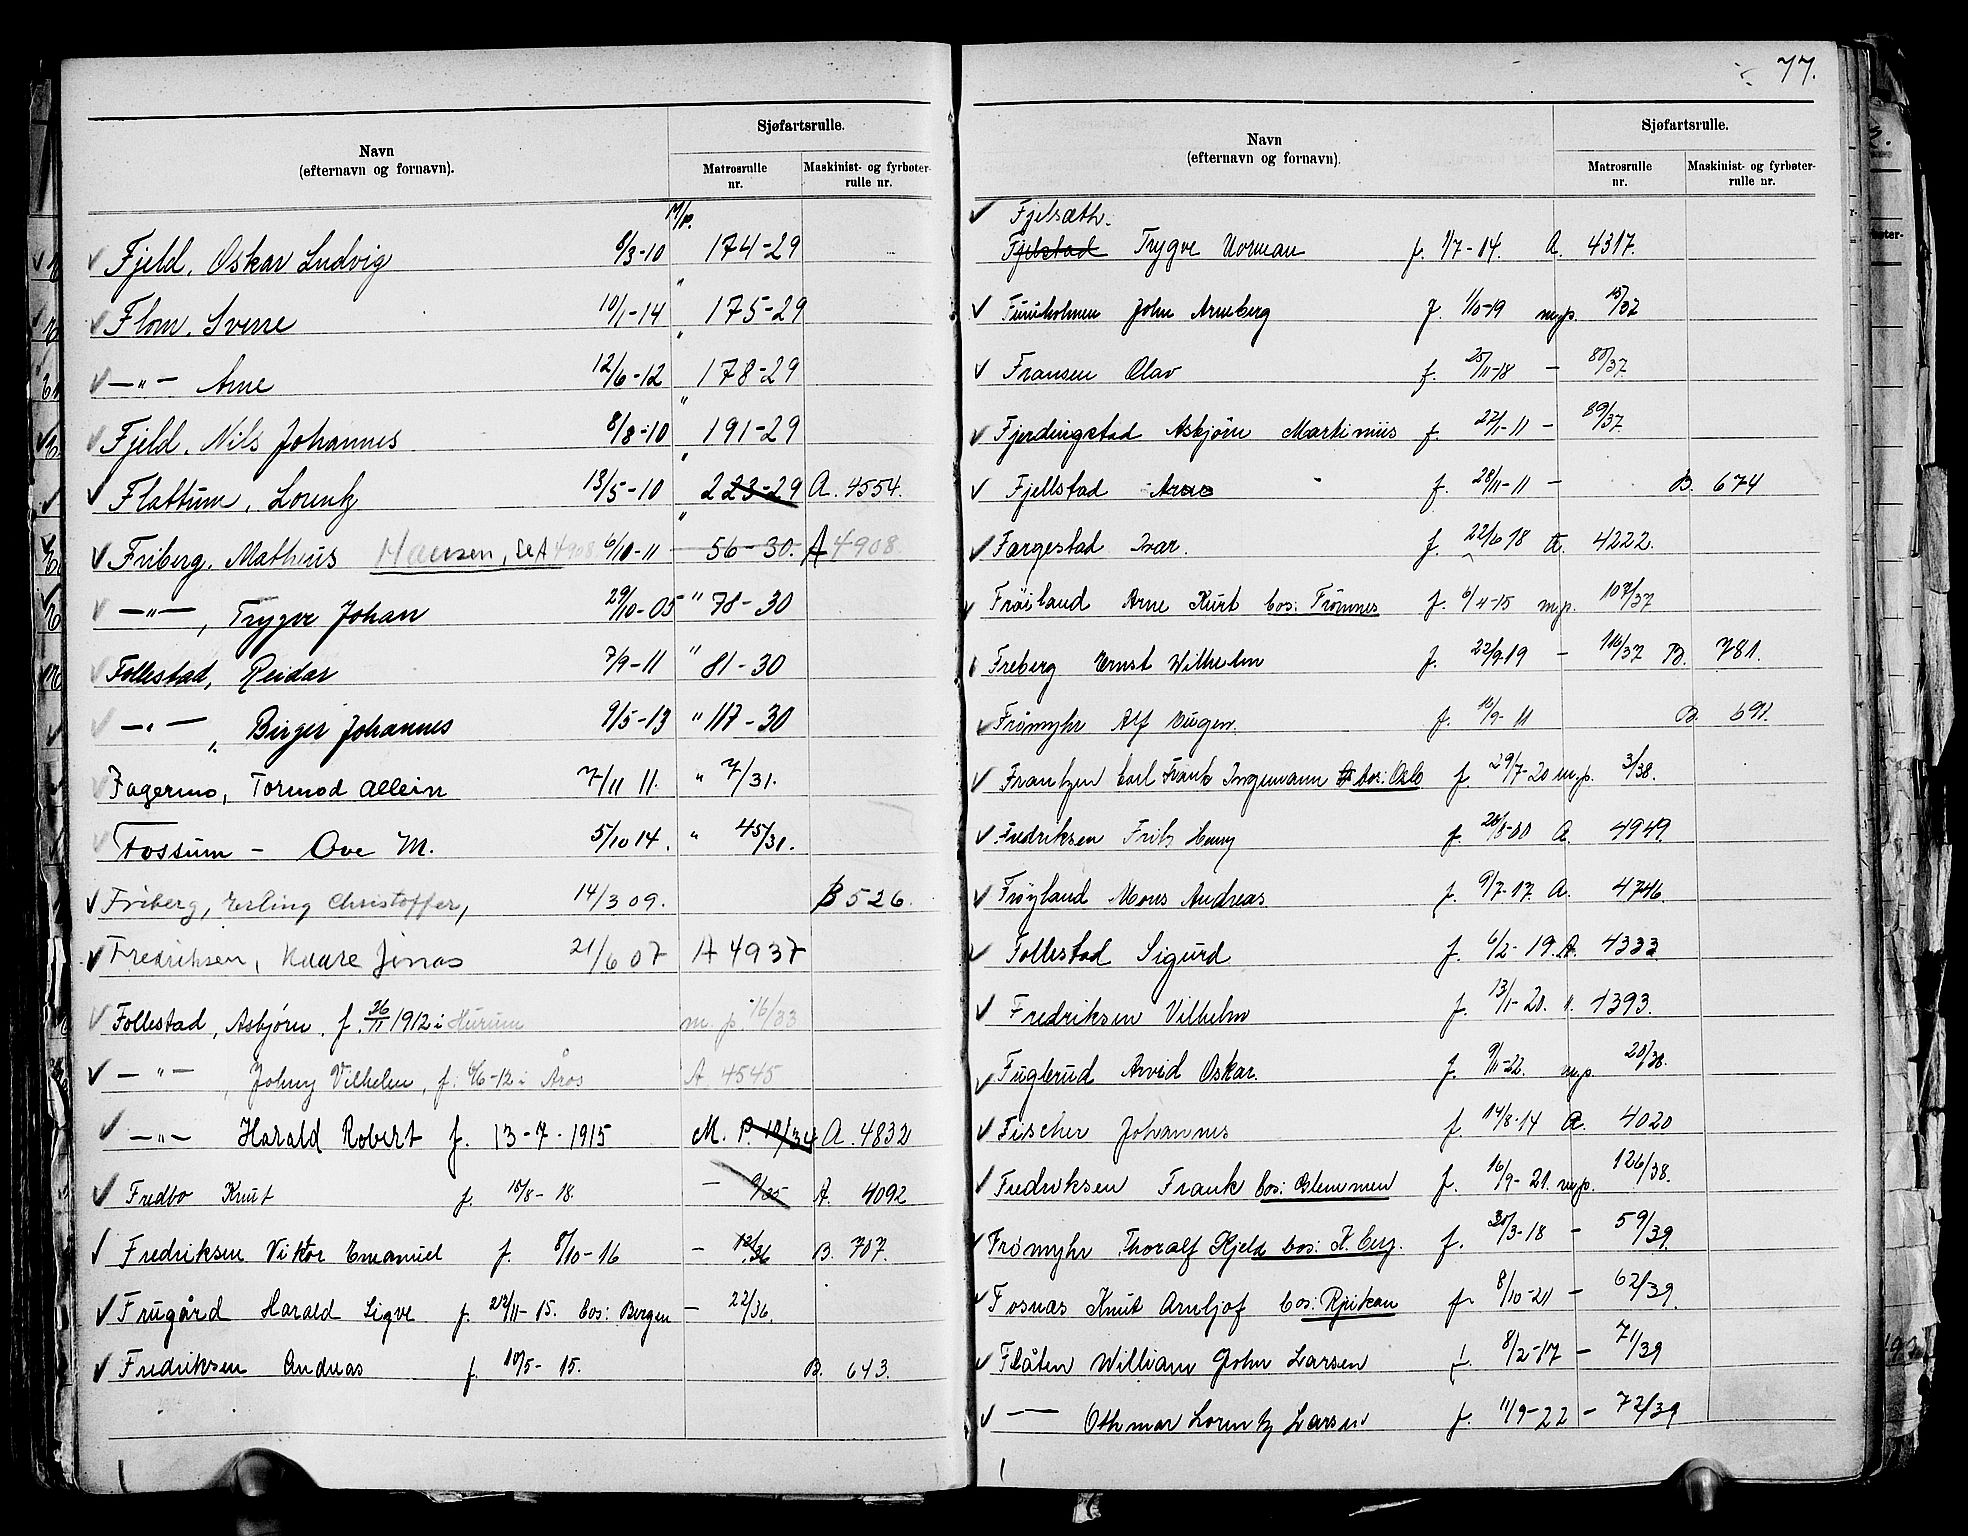 Sjøfartsrulle.
Navn
(efternavn og fornavn).
Matrosrulle nr.
Maskinist- og fyrbøter-rulle nr.
M/p.
Fjeld, Oskar Ludvig 8/3-10 174-29
Flom, Sverre 10/1-14 " 175-29
—"— Arne 12/6-12 " 178-29
Fjeld, Nils Johannes 8/8-10 " 191-29
Flattum, Lorentz 13/5-10 " 223-29 A. 4554.
Friberg, Matheus Hansen, se A 4908 6/10-11 " 56-30. A 4908
—"—, Trygve Johan 29/10-05 " 78-30
Follestad, Reidar 7/9-11 " 81-30
—"—, Birger Johannes 9/5-13 " 117-30
Fagermo, Tormod Allein 7/11 11. " 7/31.
Fossum - Ove M. 5/10 14. " 45/31.
Friberg, Erling Christoffer, 14/3 09. B 526.
Fredriksen, Kaare Jonas 21/6 07 A 4937
Follestad, Asbjørn. f. 26/11 1912 i Hurum m. p. 16/33
—"—, Johny Vilhelm, f. 6/6-12 i Åros A 4545
—"— Harald Robert f. 13-7-1915 M. P. 19/34 A. 4832
Fredbo Knut f. 15/8-18. — 9/35 A. 4092
Fredriksen Viktor Emanuel f. 8/10-16 — 12/36 B. 707.
Frugård Harald Sigve f. 28/11-15. bos: Bergen — 22/36.
Fredriksen Andreas f. 10/5-15. B. 643.
77.
Sjøfartsrulle.
Navn
(efternavn og fornavn).
Matrosrulle nr.
Maskinist- og fyrbøter-rulle nr.
Fjelsæth.
Fjelstad Trygve Norman f. 1/7-14. A. 4317.
Furuholmen John Arneberg f. 1/10-19 m.p. 15/37
Fransen Olav f. 25/11-18 — 80/37.
Fjerdingstad Asbjørn Martinius f. 27/1-11 — 89/37.
Fjellstad Arne f. 28/11-11 — B. 674
Færgestad Ivar. f. 22/6 18 A. 4222.
Frøiland Arne Kurt bos: Tromnes f. 6/4-15 m.p. 107/37
Freberg Ernst Wilhelm f. 22/9-19 — 116/37 B. 781.
Frømyhr Alf Eugen. f. 16/9-11 B. 691.
Frantzen Carl Frank Ingemann bos: Oslo f. 29/7-20 m.p. 3/38.
Fredriksen Fritz Henry f. A. 4949.
Frøyland Mons Andreas f. 9/7-17. A. 4746.
Follestad Sigurd f. 6/2-19. A. 4333
Fredriksen Vilhelm f. 13/1-20. " 4393.
Fuglerud Arvid Oskar. f. 9/11-22. m.p. 20/38.
Fischer Johannes f. 14/8-14 A. 4020
Fredriksen Frank bos: Glemmen f. 16/9-21. m.p. 126/38.
Frømyhr Thoralf Kjeld bos: K. berg. f. 30/3-18 — 59/39.
Fosnæs Knut Arnljof bos: Rjukan f. 8/10-21 — 62/39.
Flåten William John Larsen f. 8/2-17 — 71/39
—— Othmar Lorentz Larsen f. 11/9-22 — 72/39